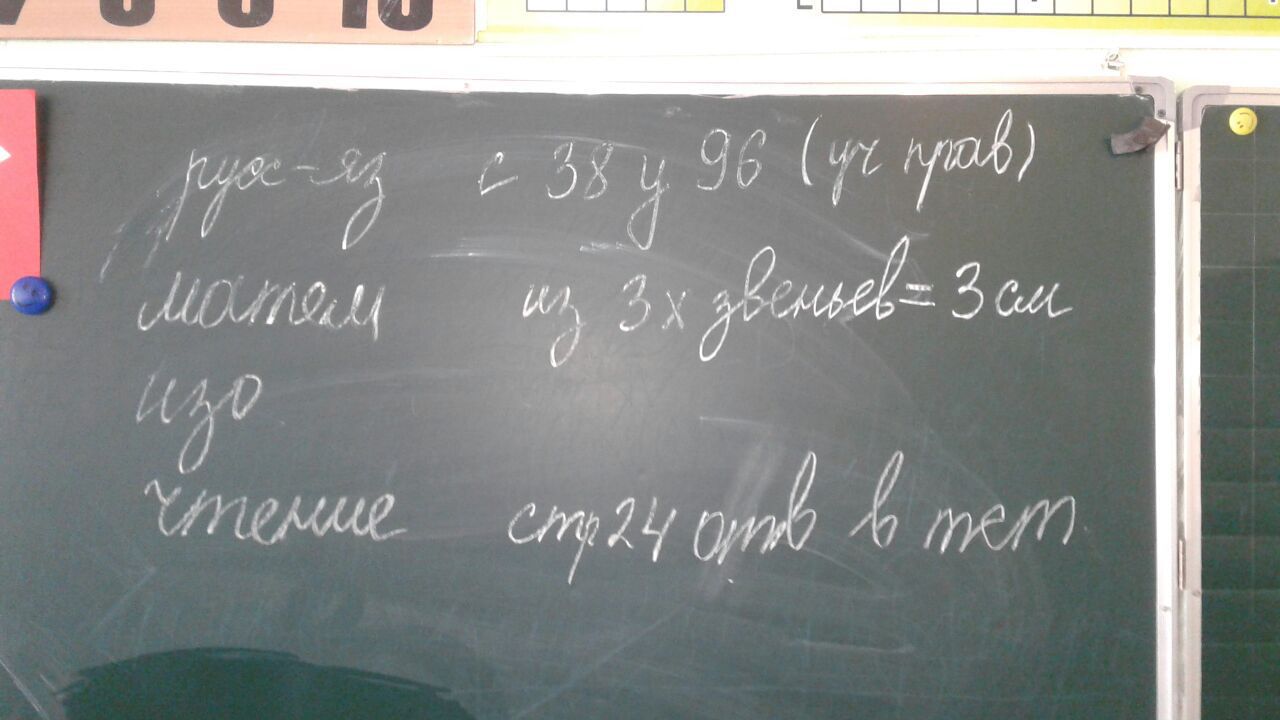 10
русс-яз с 38 у 96 (уч прав)
матем из 3х звеньев = 3 см
изо
чтение стр 24 отв в тет.